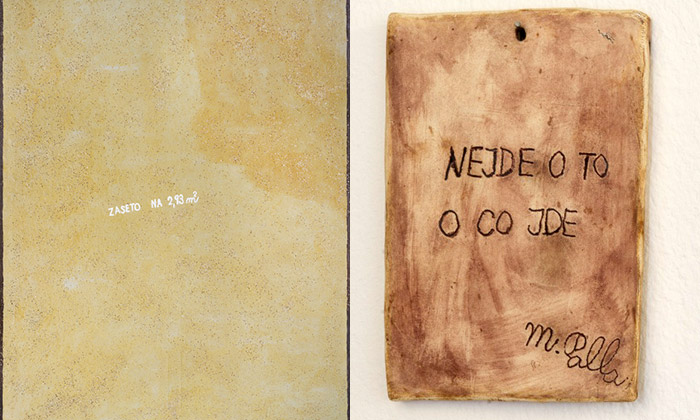 ZASETO NA 2,93 m²
NEJDE O TO
O CO JDE
M. Palla